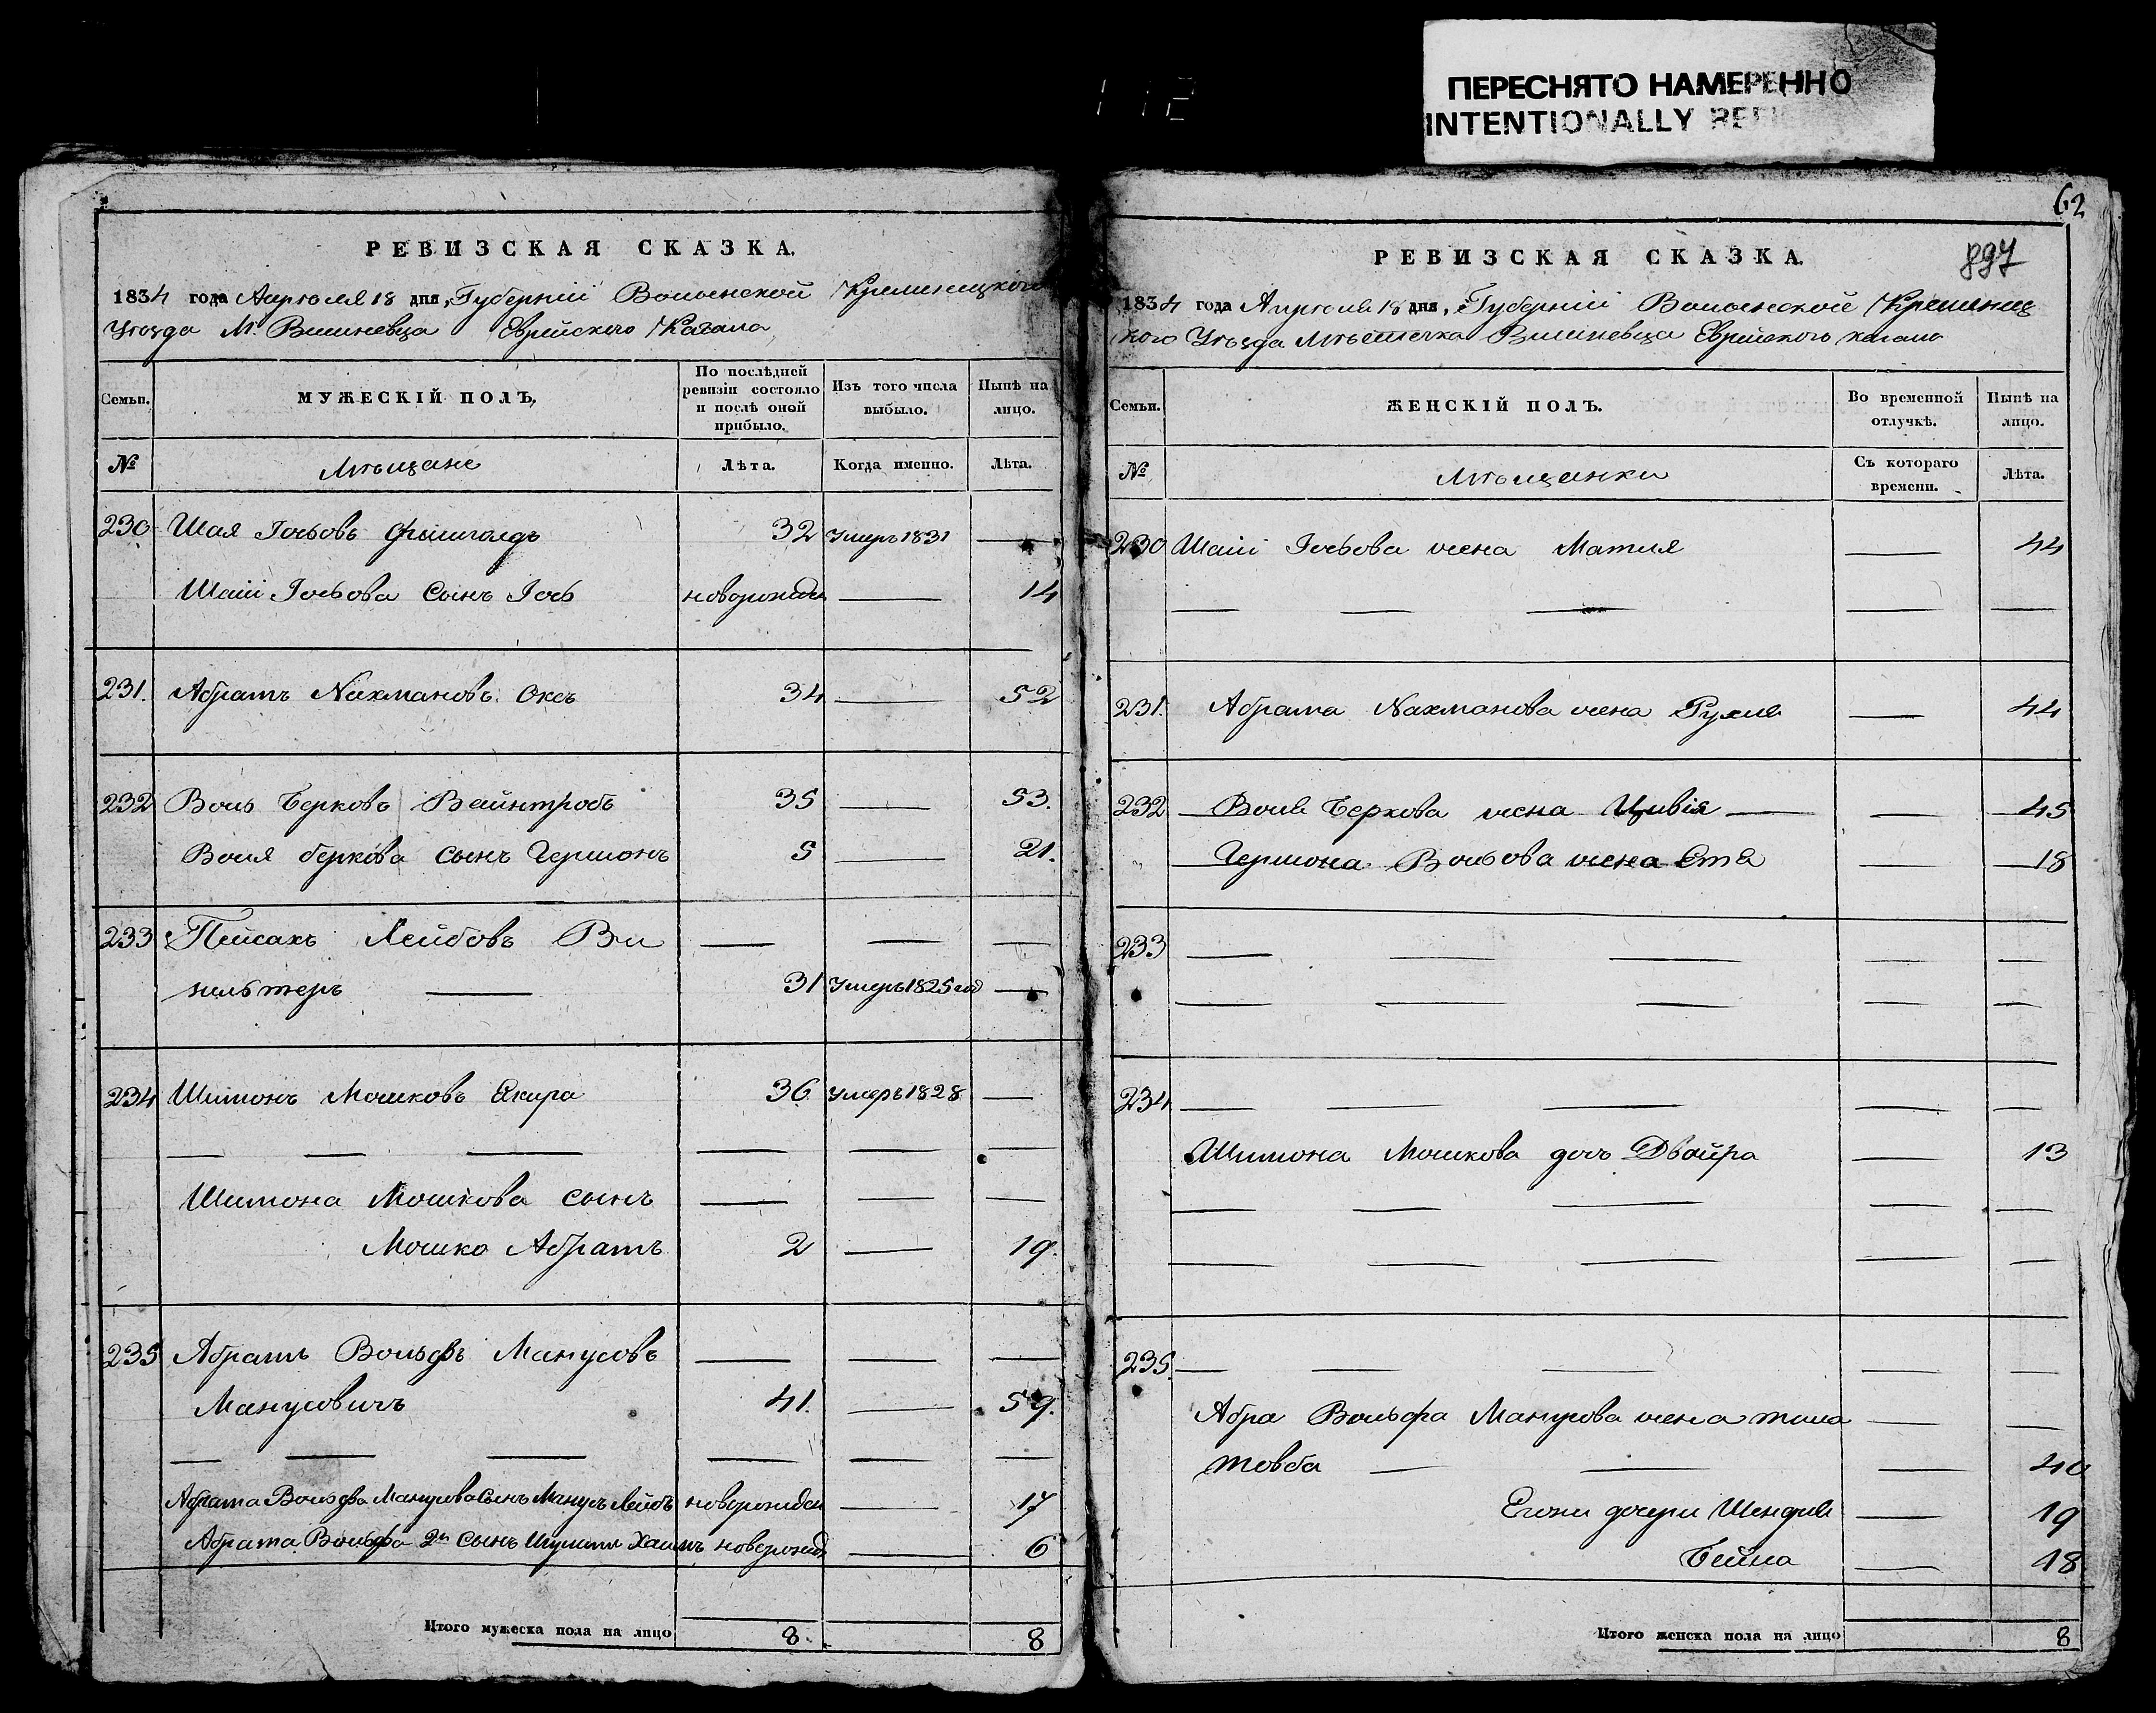 ПЕРЕСНЯТО НАМЕРЕННО
INTENTIONALLY
62
РЕВИЗСКАЯ СКАЗКА.
1834 года Апреля 18 дня, Губерніи Волынской Кременецкого
Уезда М. Вишневца Еврейского Кагала
Семьи.
МУЖЕСКІЙ ПОЛЪ,
По послѣдней ревизіи состояло и послѣ оной прибыло.
Изъ того числа выбыло.
Нынѣ на лицо.
№
Мѣщане
Лѣта.
Когда именно.
Лѣта.
230 Шая Іосьовъ 32 Умеръ 1831 —
Шаіи Іосьова Сынъ Іось новорожден — 14
231. Абрамъ Нахмановъ Оксъ 34 — 52
232 Воль Берковъ Вейнтробъ 35 — 53.
Воля беркова сынъ Гершонъ 5 — 21.
233 Пейсахъ Лейбовъ Ви — — —
нельтеръ — 31 Умеръ 1825 год —
234 Шимонъ Мошковъ Екира 36 умеръ 1828 —
— — — — — —
Шимона Мошкова сынъ — — —
Мошко Абрамъ 2 — 19.
235 Абрамъ Вольфъ Манусовъ — — —
Манусовичъ 41. — 59.
— — — — — —
Абрама Вольфа Манусова Сынъ Манусъ Лейбъ новорожден — 17
Абрама Вольфа 2й сынъ Шулимъ Хаимъ новорожд — 6
Итого мужеска пола на лицо 8. 8
РЕВИЗСКАЯ СКАЗКА.
897
1834 года Апреля 18 дня, Губерніи Волынской Кременец
кого Уѣзда Мѣстечка Вишневца Еврейского кагала
Семьи.
ЖЕНСКІЙ ПОЛЪ.
Во временной отлучкѣ.
Нынѣ на лицо.
№
Мѣщанки
Съ котораго времени.
Лѣта.
230 Шаіи Іосьова жена Матля — 44
— — — — —
231. Абрама Нахманова жена Рухля — 44
232 Воля Беркова жена Цивія — — 45
Гершона Вольова жена Етя — 18
233 — — — — —
— — — — —
234 — — — — —
Шимона Мошкова дочь Двойра — 13
— — — — —
— — — — —
235. — — — — —
Абра Вольфа Манусова жена — —
товба — — — 40
Егожи дочери Шендля — 19
Бейла — 18
Итого женска пола на лицо 8